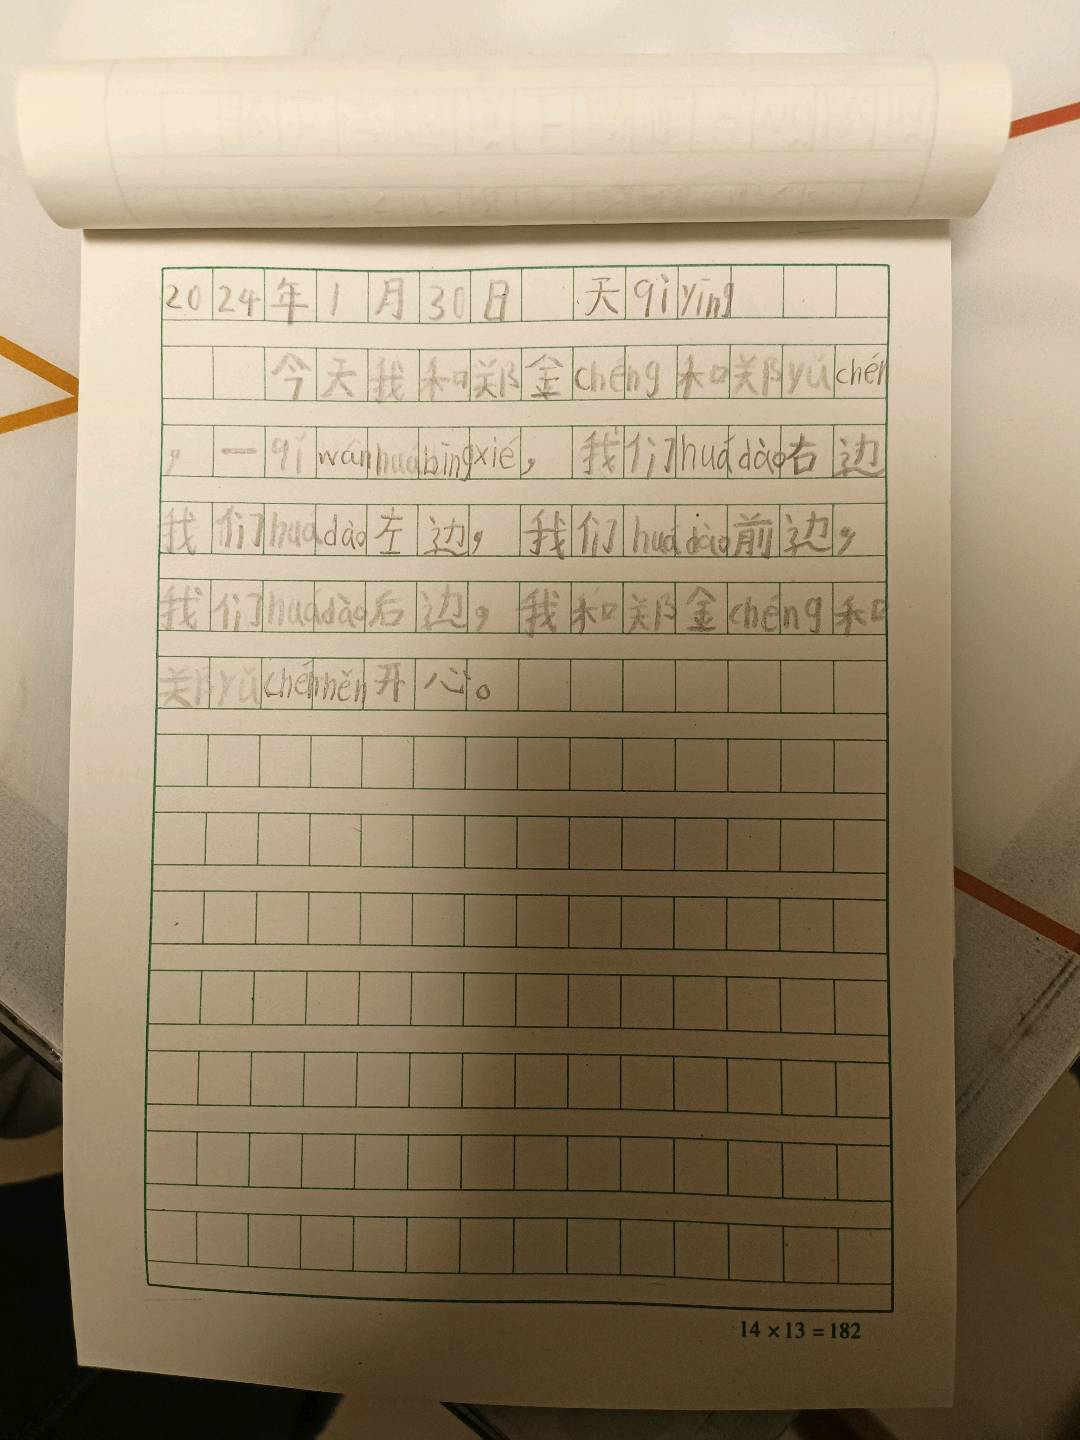 2024年1月30日 天qìyīng
今天我和郑金chéng和郑yǔchén
，一qǐwánhuábīngxié，我们huádào右边
我们huádào左边，我们huádào前边，
我们huádào后边，我和郑金chéng和
郑yǔchénhěn开心。
14×13=182